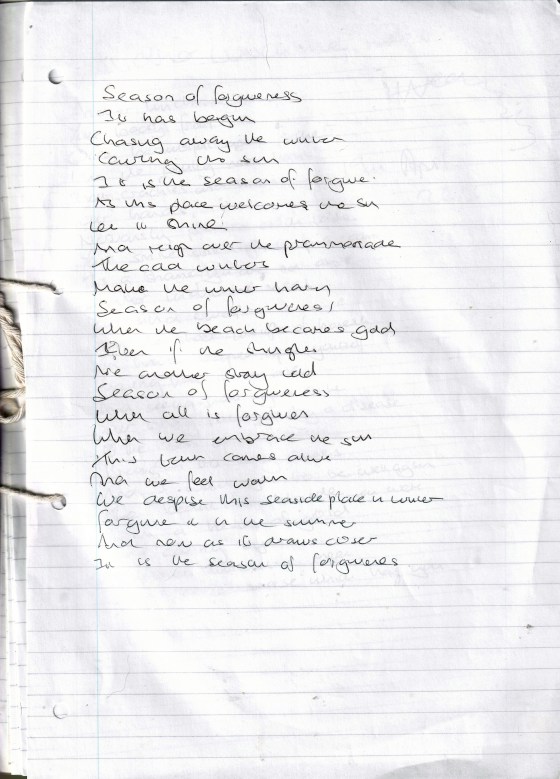 Season of forgiveness
It has begun
Chasing away the winter
Cawing the sun
It is the season of forgive.
As this place welcomes the sun
Let it shine
And reign over the prommonade
The cad winters
Make the winter
Season of forgiveness
When the beach becomes gold
Even if the shingles
Are another story
Season of forgiveness
When all is forgiven
When we embrace the sun
This town comes alive
And we feel warm
We despise this seaside place in winter
forgive it in the summer
And now as it draws closer
It is the season of forgiveness